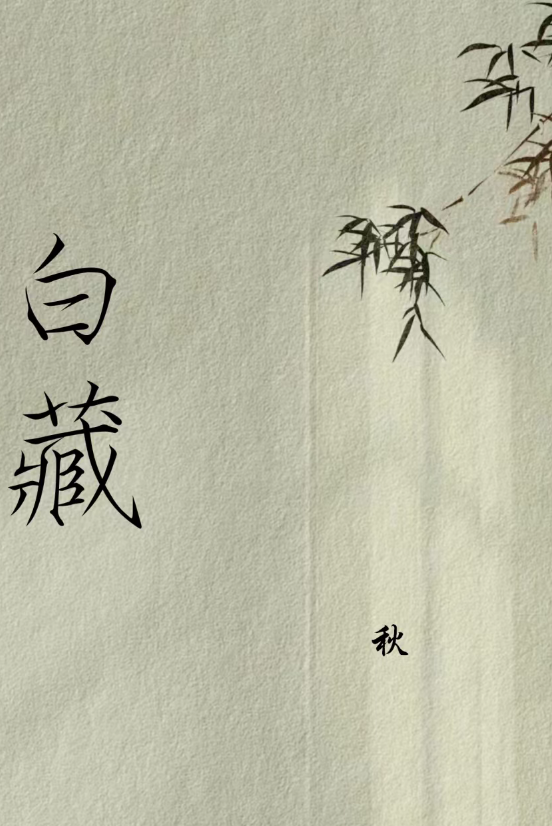 白藏
秋